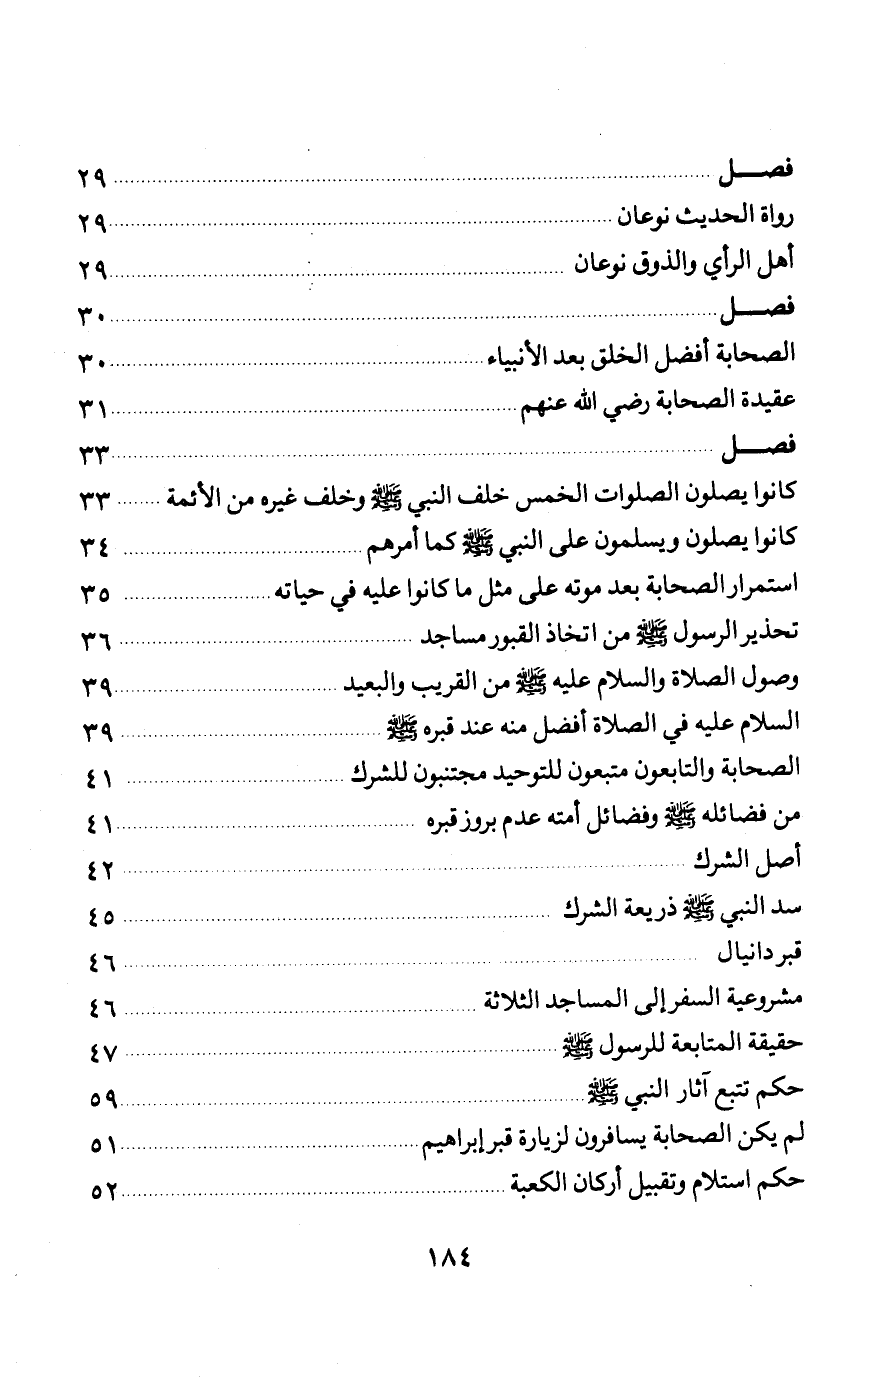 فصـــل ........ ٢٩
رواة الحديث نوعان ........ ٢٩
أهل الرأي والذوق نوعان ........ ٢٩
فصـــل ........ ٣٠
الصحابة أفضل الخلق بعد الأنبياء ........ ٣٠
عقيدة الصحابة رضي الله عنهم ........ ٣١
فصـــل ........ ٣٣
كانوا يصلون الصلوات الخمس خلف النبي ﷺ وخلف غيره من الأئمة ........ ٣٣
كانوا يصلون ويسلمون على النبي ﷺ كما أمرهم ........ ٣٤
استمرار الصحابة بعد موته على مثل ما كانوا عليه في حياته ........ ٣٥
تحذير الرسول ﷺ من اتخاذ القبور مساجد ........ ٣٦
وصول الصلاة والسلام عليه ﷺ من القريب والبعيد ........ ٣٩
السلام عليه في الصلاة أفضل منه عند قبره ﷺ ........ ٣٩
الصحابة والتابعون متبعون للتوحيد مجتنبون للشرك ........ ٤١
من فضائله ﷺ وفضائل أمته عدم بروز قبره ........ ٤١
أصل الشرك ........ ٤٢
سد النبي ﷺ ذريعة الشرك ........ ٤٥
قبر دانيال ........ ٤٦
مشروعية السفر إلى المساجد الثلاثة ........ ٤٦
حقيقة المتابعة للرسول ﷺ ........ ٤٧
حكم تتبع آثار النبي ﷺ ........ ٥٩
لم يكن الصحابة يسافرون لزيارة قبر إبراهيم ........ ٥١
حكم استلام وتقبيل أركان الكعبة ........ ٥٢
١٨٤